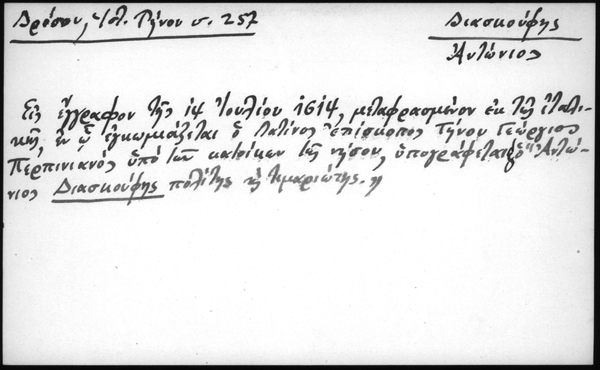 Δρόσου, Ἱστ. Τήνου σ. 257
Διασκούφης
Ἀντώνιος
Εἰς ἔγγραφον τῆς 14 Ἰουλίου 1614, μεταφρασμένον ἐκ τῆς ἰταλι-
κῆς, ἐν ᾧ ἐγκωμιάζεται ὁ Λατῖνος ἐπίσκοπος Τήνου Γεώργιος
Περπινιανός ὑπό τῶν κατοίκων τῆς νήσου, ὑπογράφεται ὁ "Ἀντώ-
νιος Διασκούφης πολίτης ἤ τιμαριώτης."